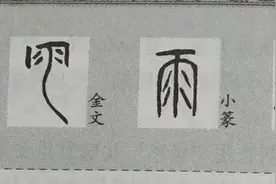 金文
雨
小篆